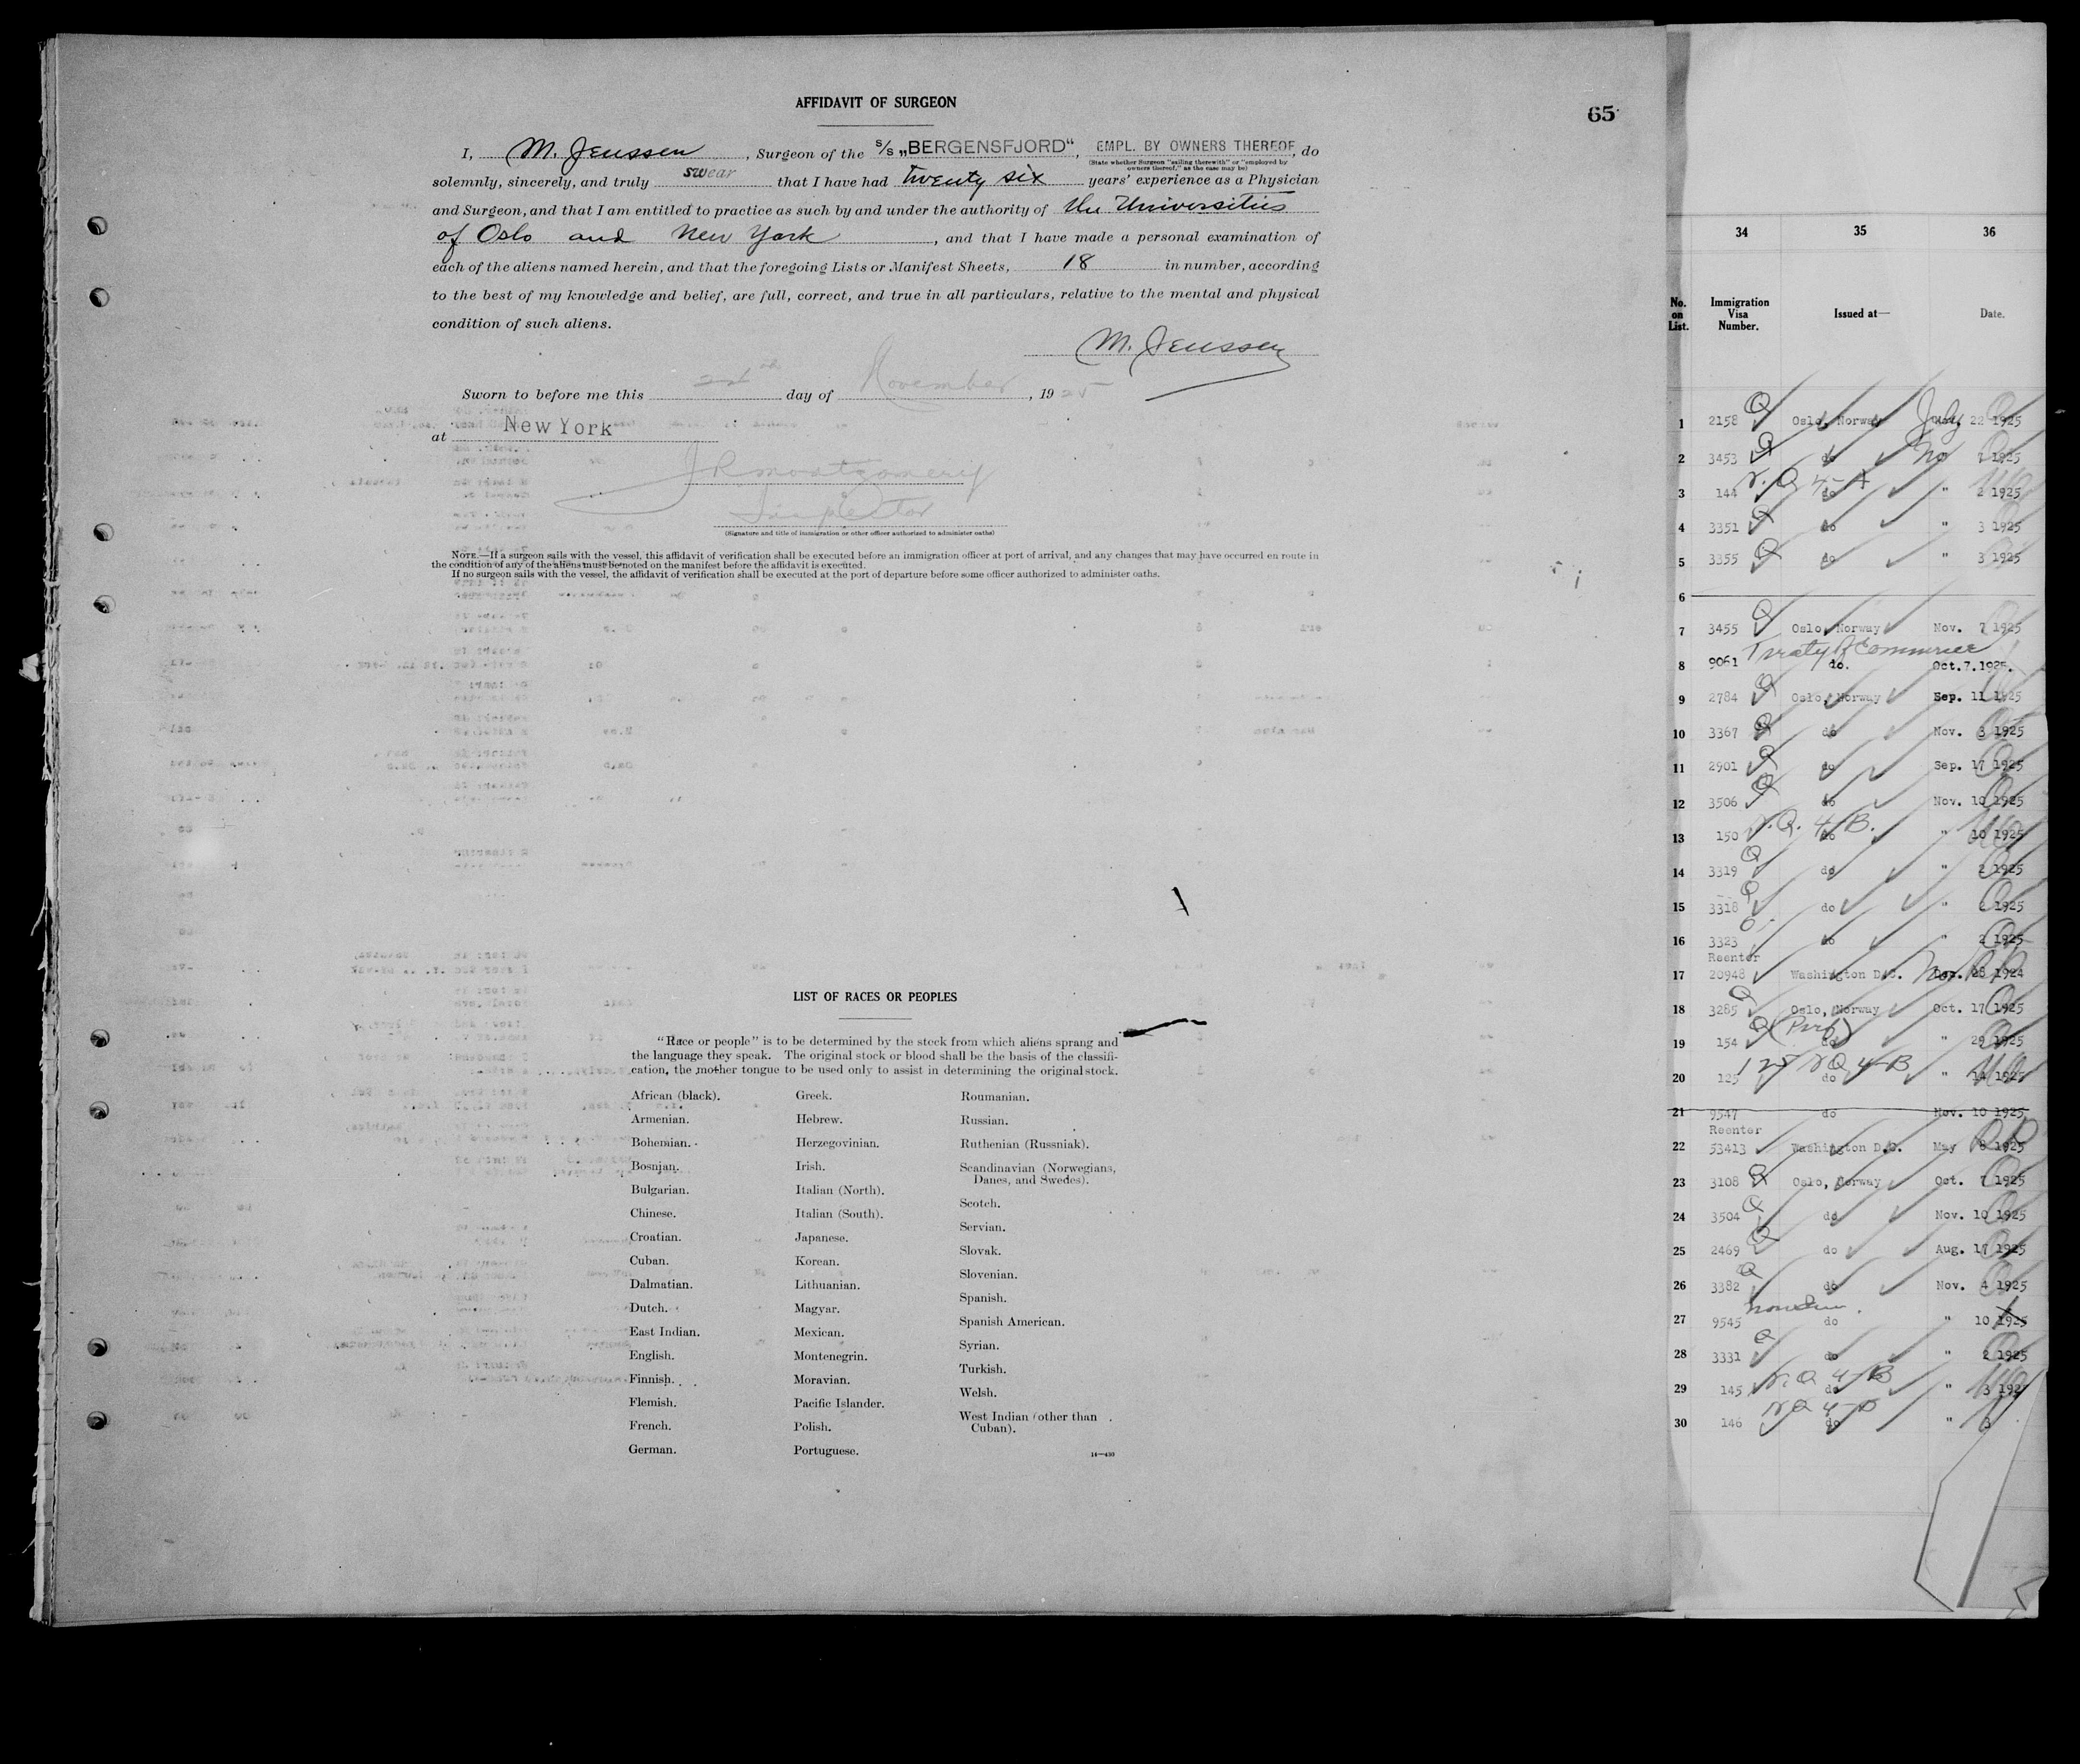 AFFIDAVIT OF SURGEON
65
I, M. Jenssen, Surgeon of the S/S „BERGENSFJORD“, EMPL. BY OWNERS THEREOF, do
(State whether Surgeon "sailing therewith" or "employed by owners thereof," as the case may be)
solemnly, sincerely, and truly swear that I have had twenty six years' experience as a Physician
and Surgeon, and that I am entitled to practice as such by and under the authority of the Universities
of Oslo and New York, and that I have made a personal examination of
each of the aliens named herein, and that the foregoing Lists or Manifest Sheets, 18 in number, according
to the best of my knowledge and belief, are full, correct, and true in all particulars, relative to the mental and physical
condition of such aliens.
M. Jenssen
Sworn to before me this day of November, 1925
at New York
J R Montgomery
Inspector
(Signature and title of immigration or other officer authorized to administer oaths)
NOTE.—If a surgeon sails with the vessel, this affidavit of verification shall be executed before an immigration officer at port of arrival, and any changes that may have occurred en route in
the condition of any of the aliens must be noted on the manifest before the affidavit is executed.
If no surgeon sails with the vessel, the affidavit of verification shall be executed at the port of departure before some officer authorized to administer oaths.
LIST OF RACES OR PEOPLES
"Race or people" is to be determined by the stock from which aliens sprang and
the language they speak. The original stock or blood shall be the basis of the classifi-
cation, the mother tongue to be used only to assist in determining the original stock.
African (black).
Armenian.
Bohemian.
Bosnian.
Bulgarian.
Chinese.
Croatian.
Cuban.
Dalmatian.
Dutch.
East Indian.
English.
Finnish.
Flemish.
French.
German.
Greek.
Hebrew.
Herzegovinian.
Irish.
Italian (North).
Italian (South).
Japanese.
Korean.
Lithuanian.
Magyar.
Mexican.
Montenegrin.
Moravian.
Pacific Islander.
Polish.
Portuguese.
Roumanian.
Russian.
Ruthenian (Russniak).
Scandinavian (Norwegians,
Danes, and Swedes).
Scotch.
Servian.
Slovak.
Slovenian.
Spanish.
Spanish American.
Syrian.
Turkish.
Welsh.
West Indian (other than
Cuban).
14—430
34 35 36
No. on List. Immigration Visa Number. Issued at— Date.
1 2158 Q Oslo, Norway July 22 1925
2 3453 Q do No 1925
3 144 do " 2 1925
4 3351 Q do " 3 1925
5 3355 Q do " 3 1925
6
7 3455 Q Oslo, Norway Nov. 7 1925
Treaty of Commerce
8 9061 do. Oct.7.1925.
9 2784 Q Oslo, Norway Sep. 11 1925
10 3367 Q do Nov. 3 1925
11 2901 Q do Sep. 17 1925
12 3506 Q do Nov. 10 1925
13 150 N.Q. 4 B. do " 10 1925
14 3319 Q do " 2 1925
15 3318 Q do " 2 1925
16 3323 do " 2 1925
Reenter
17 20948 Washington D.C. 28 1924
18 3285 Q Oslo, Norway Oct. 17 1925
19 154 Q do " 29 1925
20 125 NQ 4-B do " 14 1925
21 9547 do Nov. 10 1925
Reenter
22 53413 Washington D.C. May 8 1925
23 3108 Q Oslo, Norway Oct. 7 1925
24 3504 Q do Nov. 10 1925
25 2469 Q do Aug. 17 1925
26 3382 Q do Nov. 4 1925
27 9545 do " 10 1925
28 3331 Q do " 2 1925
29 145 N.Q 4-B do " 3 192
30 146 NQ 4-B do " 3